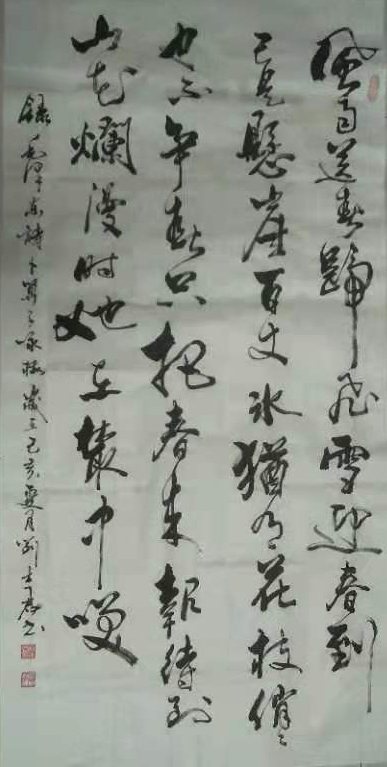 風雨送春歸飛雪迎春到
已是懸崖百丈冰猶有花枝俏俏
也不争春只把春来報待到
山花爛漫时她在叢中咲
錄毛泽东詩卜算子咏梅歲在己亥夏月劉士书